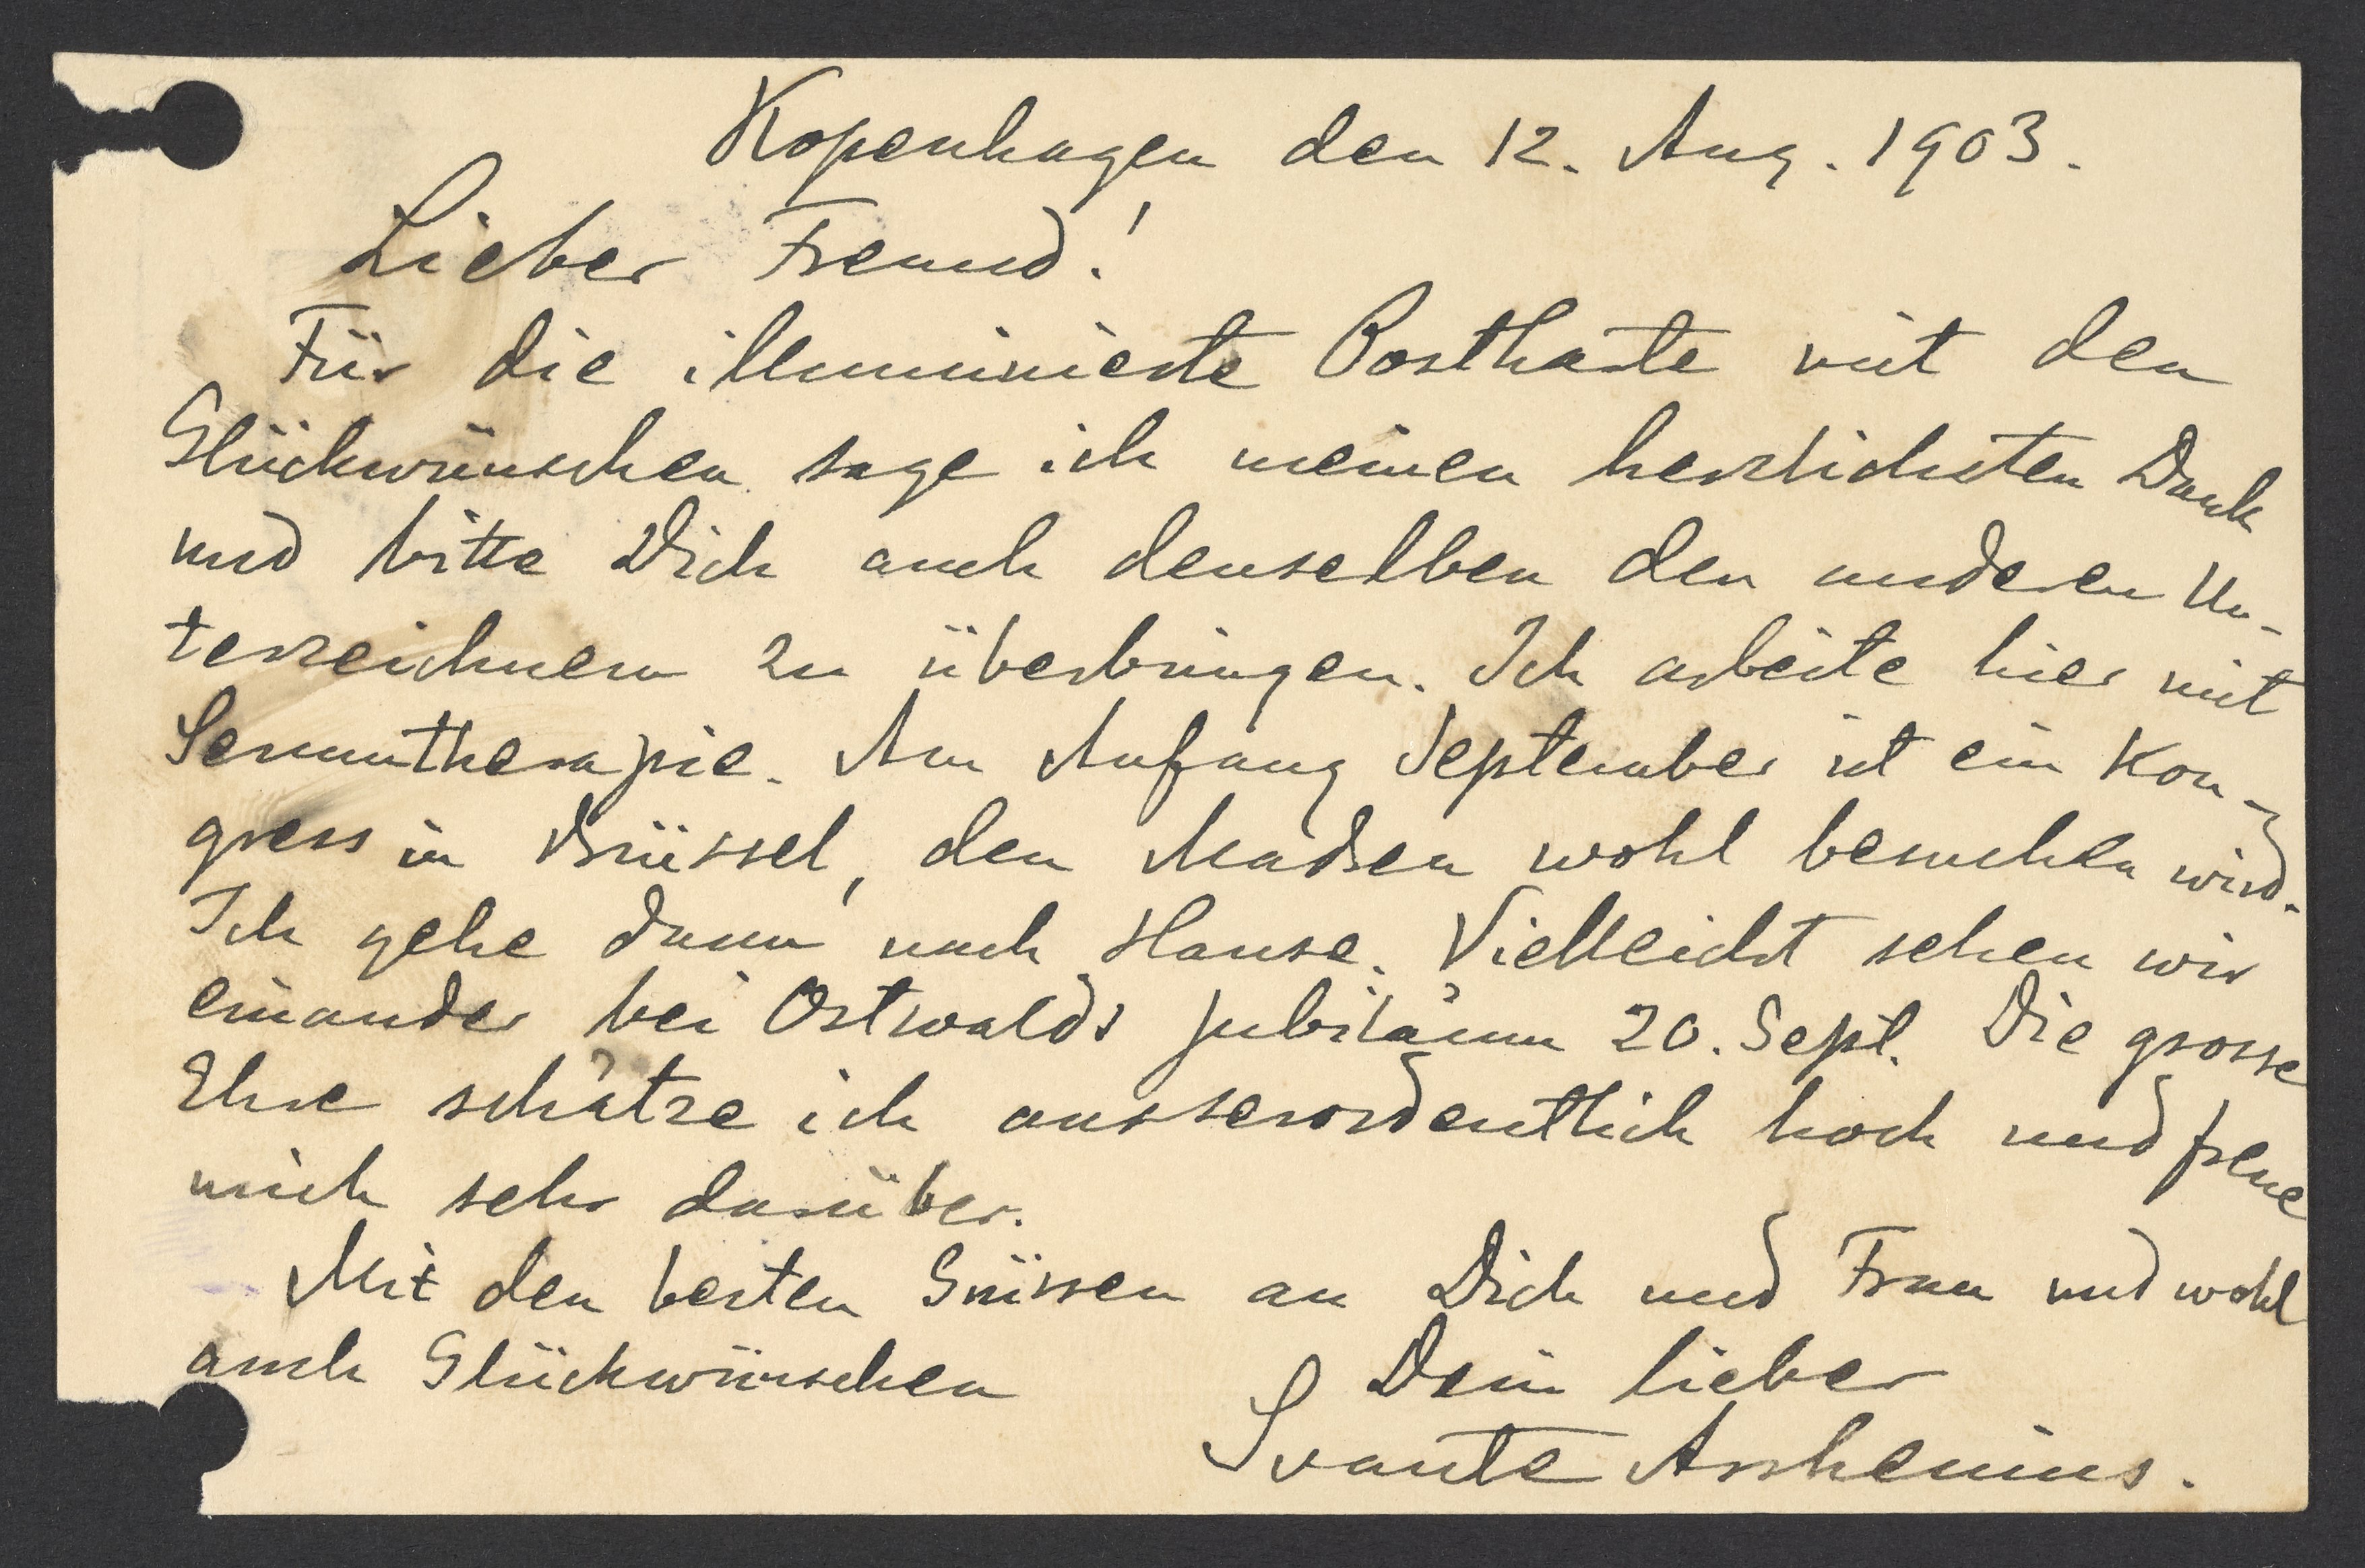 Kopenhagen den 12. Aug. 1903.
Lieber Freund!
Für die illuminierte Postkarte mit den
Glückwünschen sage ich meinen herzlichsten Dank
und bitte Dich auch denselben den anderen Un-
terzeichnern zu überbringen. Ich arbeite hier mit
Serumtherapie. Am Anfang September ist ein Kon-
gress in Brüssel, den Madsen wohl besuchen wird.
Ich gehe dann nach Hause. Vielleicht sehen wir
einander bei Ostwalds Jubiläum 20. Sept. Die grosse
Ehre schätze ich ausserordentlich hoch und freue
mich sehr darüber.
Mit den besten Grüssen an Dich und Frau und wohl
auch Glückwünschen
Dein lieber
Svante Arrhenius.